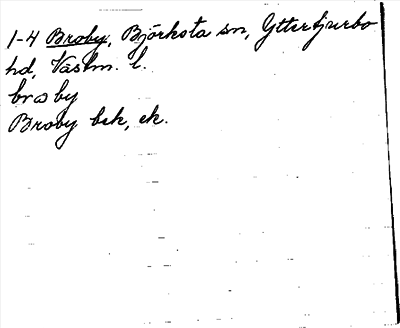 1-4 Broby, Björksta sn, Ytterjurbo
hd, Västm. l.
broby
Broby bek, ek.